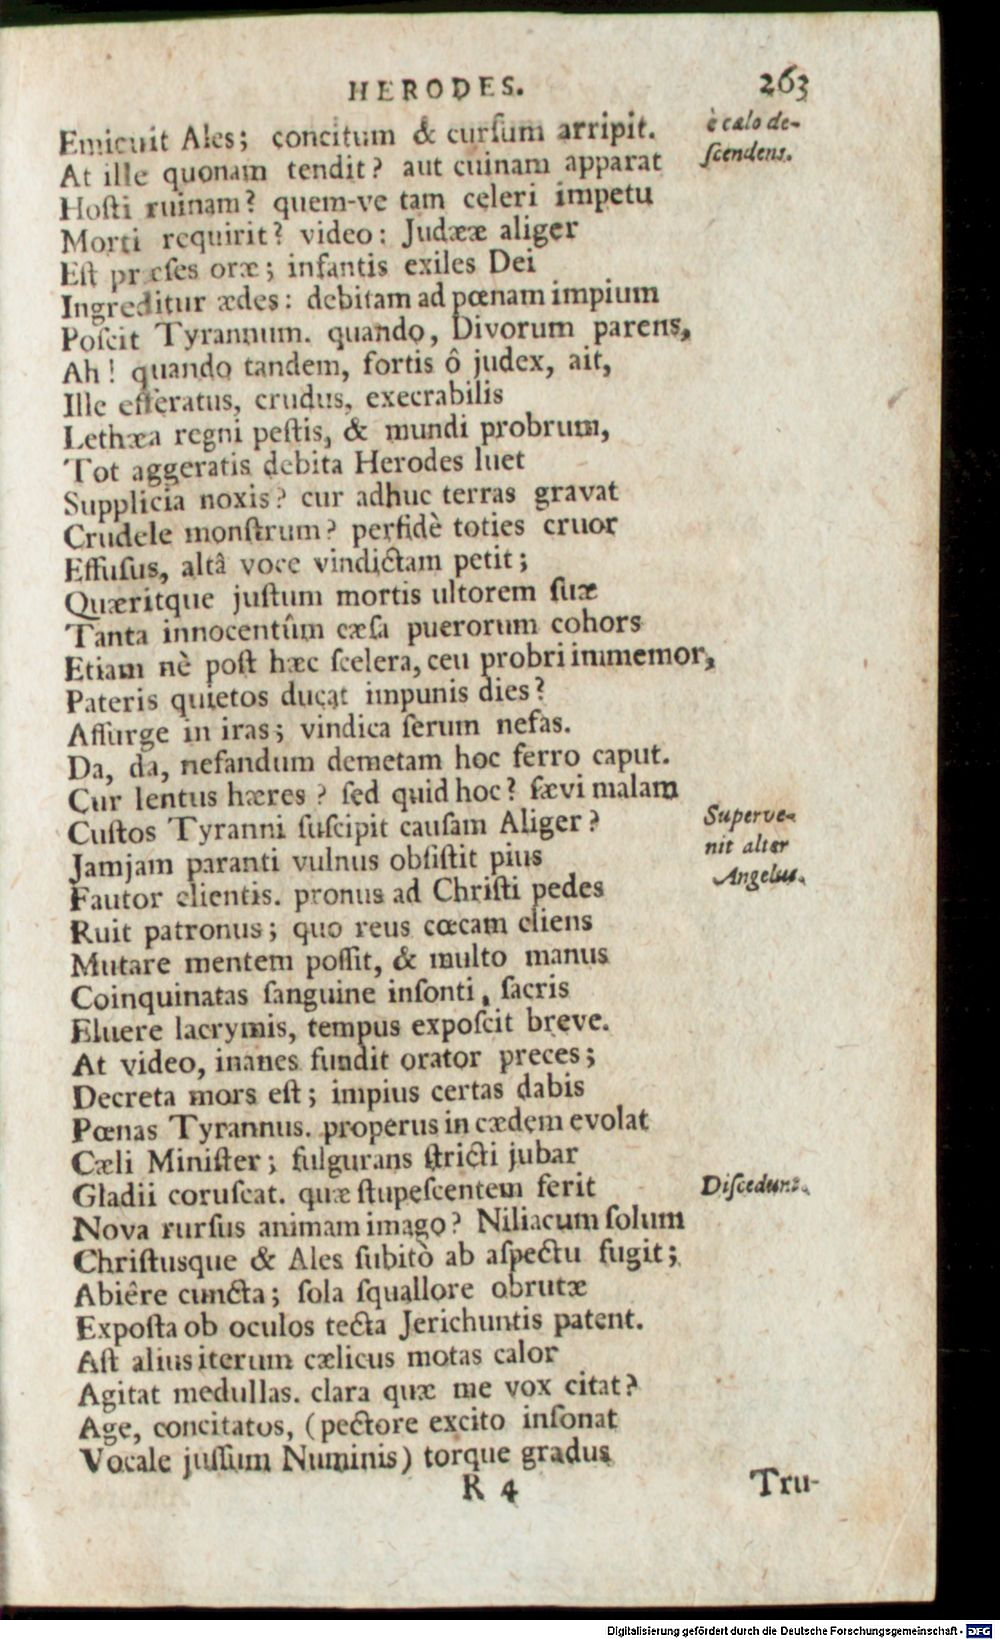 HERODES. 263
Emicuit Ales; concitum & curſum arripit.
è cælo de-
At ille quonam tendit? aut cuinam apparat
ſcendens.
Hoſti ruinam? quem-ve tam celeri impetu
Morti requirit? video: Judææ aliger
Eſt præſes oræ; infantis exiles Dei
Ingreditur ædes: debitam ad pœnam impium
Poſcit Tyrannum. quando, Divorum parens,
Ah! quando tandem, fortis ô judex, ait,
Ille efferatus, crudus, execrabilis
Lethæa regni peſtis, & mundi probrum,
Tot aggeratis debita Herodes luet
Supplicia noxis? cur adhuc terras gravat
Crudele monſtrum? perfidè toties cruor
Effuſus, altâ voce vindictam petit;
Quæritque juſtum mortis ultorem ſuæ
Tanta innocentûm cæſa puerorum cohors
Etiam nè poſt hæc ſcelera, ceu probri immemor,
Pateris quietos ducat impunis dies?
Aſſurge in iras; vindica ſerum nefas.
Da, da, nefandum demetam hoc ferro caput.
Cur lentus hæres? ſed quid hoc? ſævi malam
Superve-
Cuſtos Tyranni ſuſcipit cauſam Aliger?
nit alter
Jamjam paranti vulnus obſiſtit pius
Angelus.
Fautor clientis. pronus ad Chriſti pedes
Ruit patronus; quo reus cœcam cliens
Mutare mentem poſſit, & multo manus
Coinquinatas ſanguine inſonti, ſacris
Eluere lacrymis, tempus expoſcit breve.
At video, inanes fundit orator preces;
Decreta mors eſt; impius certas dabis
Pœnas Tyrannus. properus in cædem evolat
Cæli Miniſter; fulgurans ſtricti jubar
Gladii coruſcat. quæ ſtupeſcentem ferit
Diſcedunt.
Nova rurſus animam imago? Niliacum ſolum
Chriſtusque & Ales ſubitò ab aſpectu fugit;
Abiêre cuncta; ſola ſquallore obrutæ
Expoſta ob oculos tecta Jerichuntis patent.
Aſt alius iterum cælicus motas calor
Agitat medullas. clara quæ me vox citat?
Age, concitatos, (pectore excito inſonat
Vocale juſſum Numinis) torque gradus
R 4 Tru-
Digitalisierung gefördert durch die Deutsche Forschungsgemeinschaft - DFG